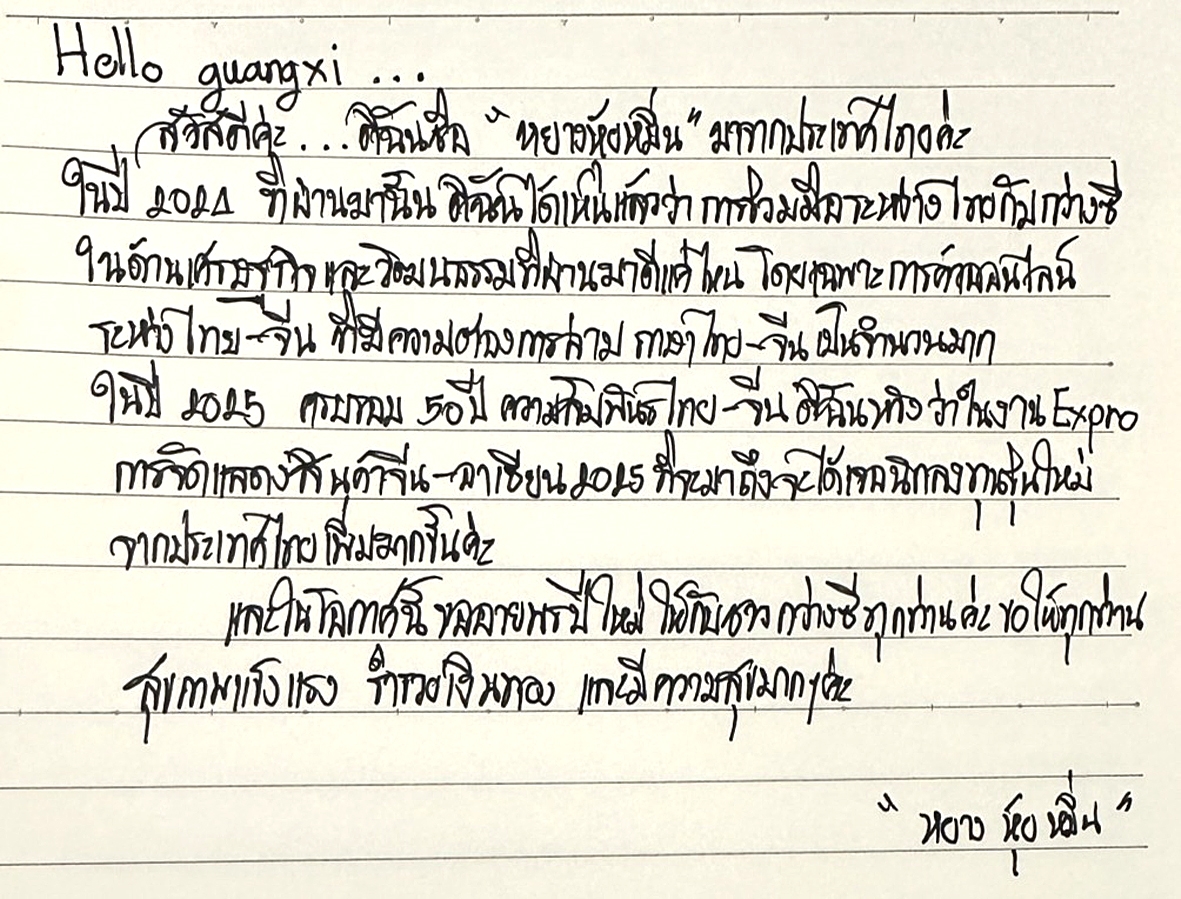 Hello guangxi ...
สวัสดีค่ะ...ดิฉันชื่อ "หยางหุ้ยหมิ่น" มาจากประเทศไทยค่ะ
ในปี 2024 ที่ผ่านมานั้น ดิฉันได้เห็นแล้วว่า การร่วมมือระหว่างไทยกับกว่างซี
ในด้านเศรษฐกิจ และวัฒนธรรมที่ผ่านมาดีแค่ไหน โดยเฉพาะการค้าออนไลน์
ระหว่างไทย-จีน ที่มีความต้องการล่าม ภาษาไทย-จีน เป็นจำนวนมาก
ในปี 2025 ครบรอบ 50 ปี ความสัมพันธ์ไทย-จีน ดิฉันหวังว่าในงาน Expro
การจัดแสดงสินค้าจีน-อาเซียน 2025 ที่จะมาถึงจะได้เจอนักลงทุนรุ่นใหม่
จากประเทศไทยเพิ่มมากขึ้นค่ะ
และในโอกาสนี้ ขออวยพรปีใหม่ ให้กับชาวกว่างซีทุกท่านค่ะ ขอให้ทุกท่าน
สุขภาพแข็งแรง ร่ำรวยเงินทอง และมีความสุขมากๆค่ะ
"หยาง หุ้ย หมิ่น"